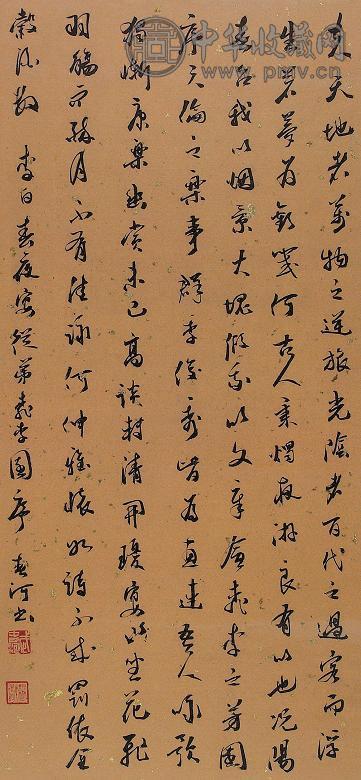 夫天地者萬物之逆旅光陰者百代之過客而浮
生若夢為歡幾何古人秉燭夜游良有以也況陽
春召我以烟景大塊假我以文章會桃李之芳園
序天倫之樂事群季俊秀皆為惠連吾人詠歌
獨慚康樂幽賞未已高談轉清開瓊宴以坐花飛
羽觴而醉月不有佳詠何伸雅懷如詩不成罰依金
穀酒數 李白春夜宴從弟桃李園序 春河书
中华收藏网